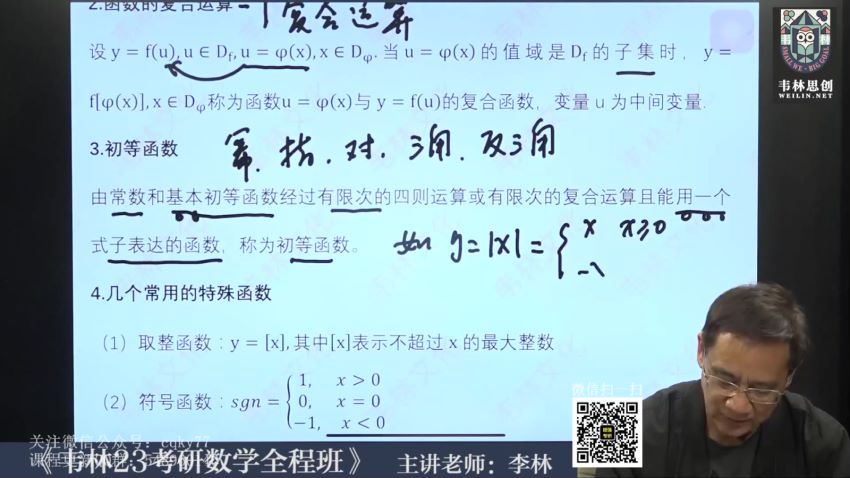 2.函数的复合运算 一个复合运算
设 y = f(u), u ∈ D_f, u = φ(x), x ∈ D_φ. 当 u = φ(x) 的 值 域 是 D_f 的 子 集 时， y =
f[φ(x)], x ∈ D_φ称为函数u = φ(x)与 y = f(u)的复合函数，变量 u 为中间变量.
3.初等函数 幂. 指. 对. 三角. 反三角
由常数和基本初等函数经过有限次的四则运算或有限次的复合运算且能用一个
式子表达的函数，称为初等函数。 如 y = |x| = { x x≥0
-x
4.几个常用的特殊函数
（1）取整函数：y = [x], 其中[x]表示不超过 x 的最大整数
（2）符号函数：sgn = { 1, x > 0
0, x = 0
−1, x < 0
韦林思创
WEILIN.NET
微信扫一扫
关注微信公众号：cqky77
《韦林23考研数学全程班》 主讲老师：李林